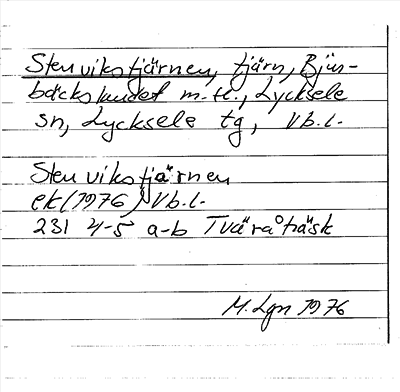 Stenvikstjärnen, tjärn, Bjur-
bäckslandet m.fl., Lycksele
sn, Lycksele tg, Vb.l.
Stenvikstjärnen
ek (1976) Vb.l.
231 4-5 a-b Tväråträsk
M. Lgn 1976